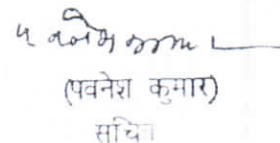 (पवनेश कुमार)
सचिव